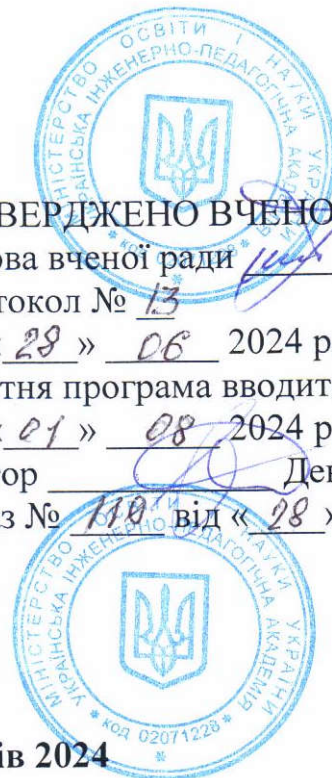 МІНІСТЕРСТВО ОСВІТИ І НАУКИ УКРАЇНИ
УКРАЇНСЬКА ІНЖЕНЕРНО-ПЕДАГОГІЧНА АКАДЕМІЯ
* код 02071228 *
ВЕРДЖЕНО ВЧЕНО
ова вченої ради
токол № 13
28 » 06 2024 р
тня програма вводит
« 01 » 08 2024 р
тор Ден
аз № 110 від « 28 »
МІНІСТЕРСТВО ОСВІТИ І НАУКИ УКРАЇНИ
УКРАЇНСЬКА ІНЖЕНЕРНО-ПЕДАГОГІЧНА АКАДЕМІЯ
* код 02071228 *
ів 2024